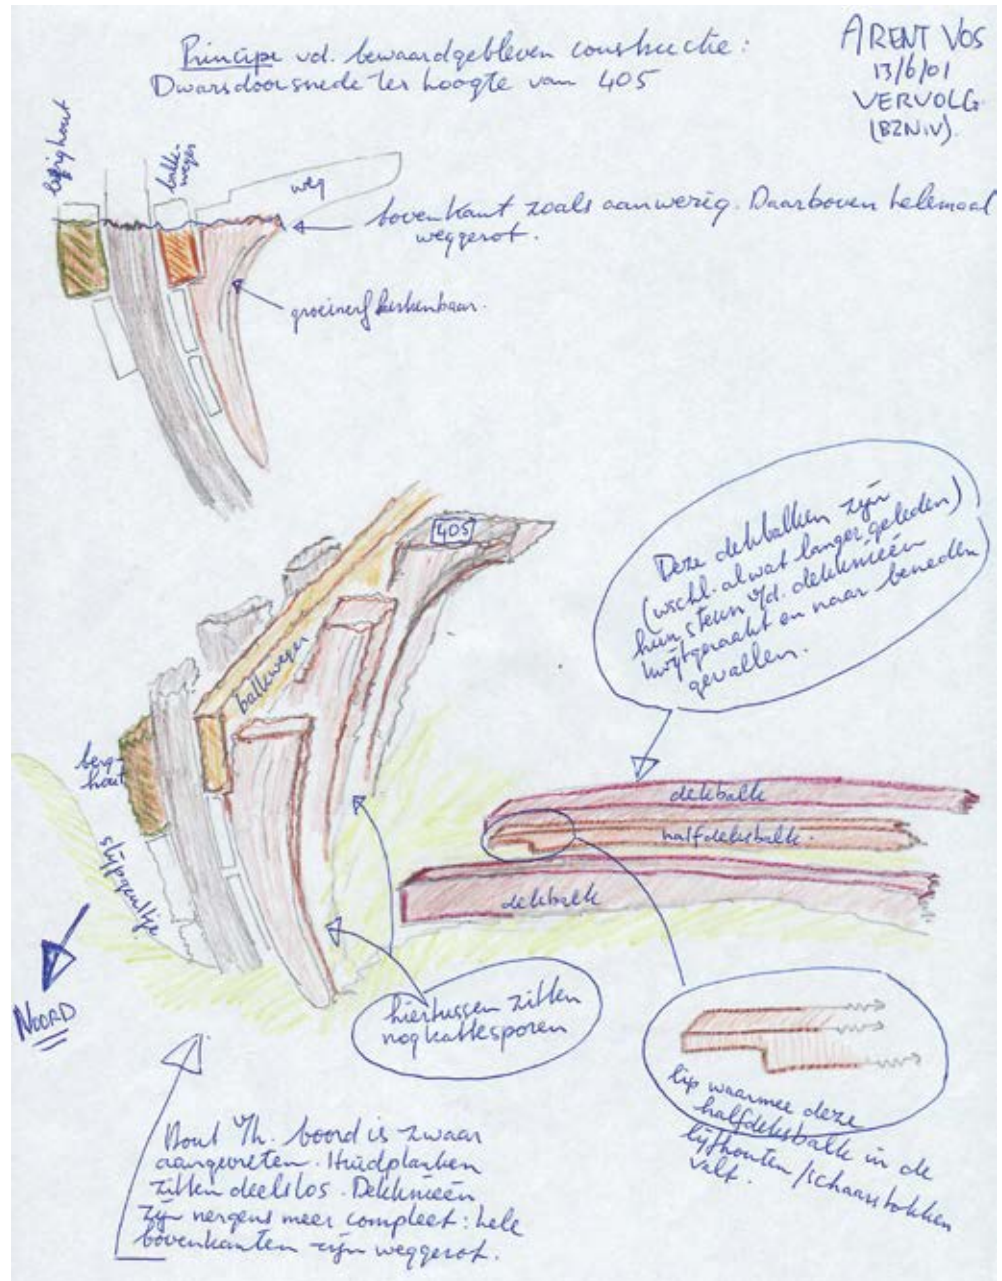 Principe vd. bewaardgebleven constructie:
Dwarsdoorsnede ter hoogte van 405
ARENT VOS
13/6/01
VERVOLG
(BZN.IV).
balk-
weger
weg
bovenkant zoals aanwezig. Daarboven helemaal
weggerot.
groeinerf herkenbaar.
405
balkweger
berg-
hout
slijpgeultje
NOORD
Deze dekbalken zijn
(wschl. al wat langer geleden)
hun steun v/d. dekknieën
kwijtgeraakt en naar beneden
gevallen.
dekbalk
halfdeksbalk.
dekbalk
hiertussen zitten
nog kattesporen
lip waarmee deze
halfdeksbalk in de
lijfhouten/schaarstokken
valt.
Hout v/h. boord is zwaar
aangevreten. Huidplanken
zitten deels los. Dekknieën
zijn nergens meer compleet: hele
bovenkanten zijn weggerot.